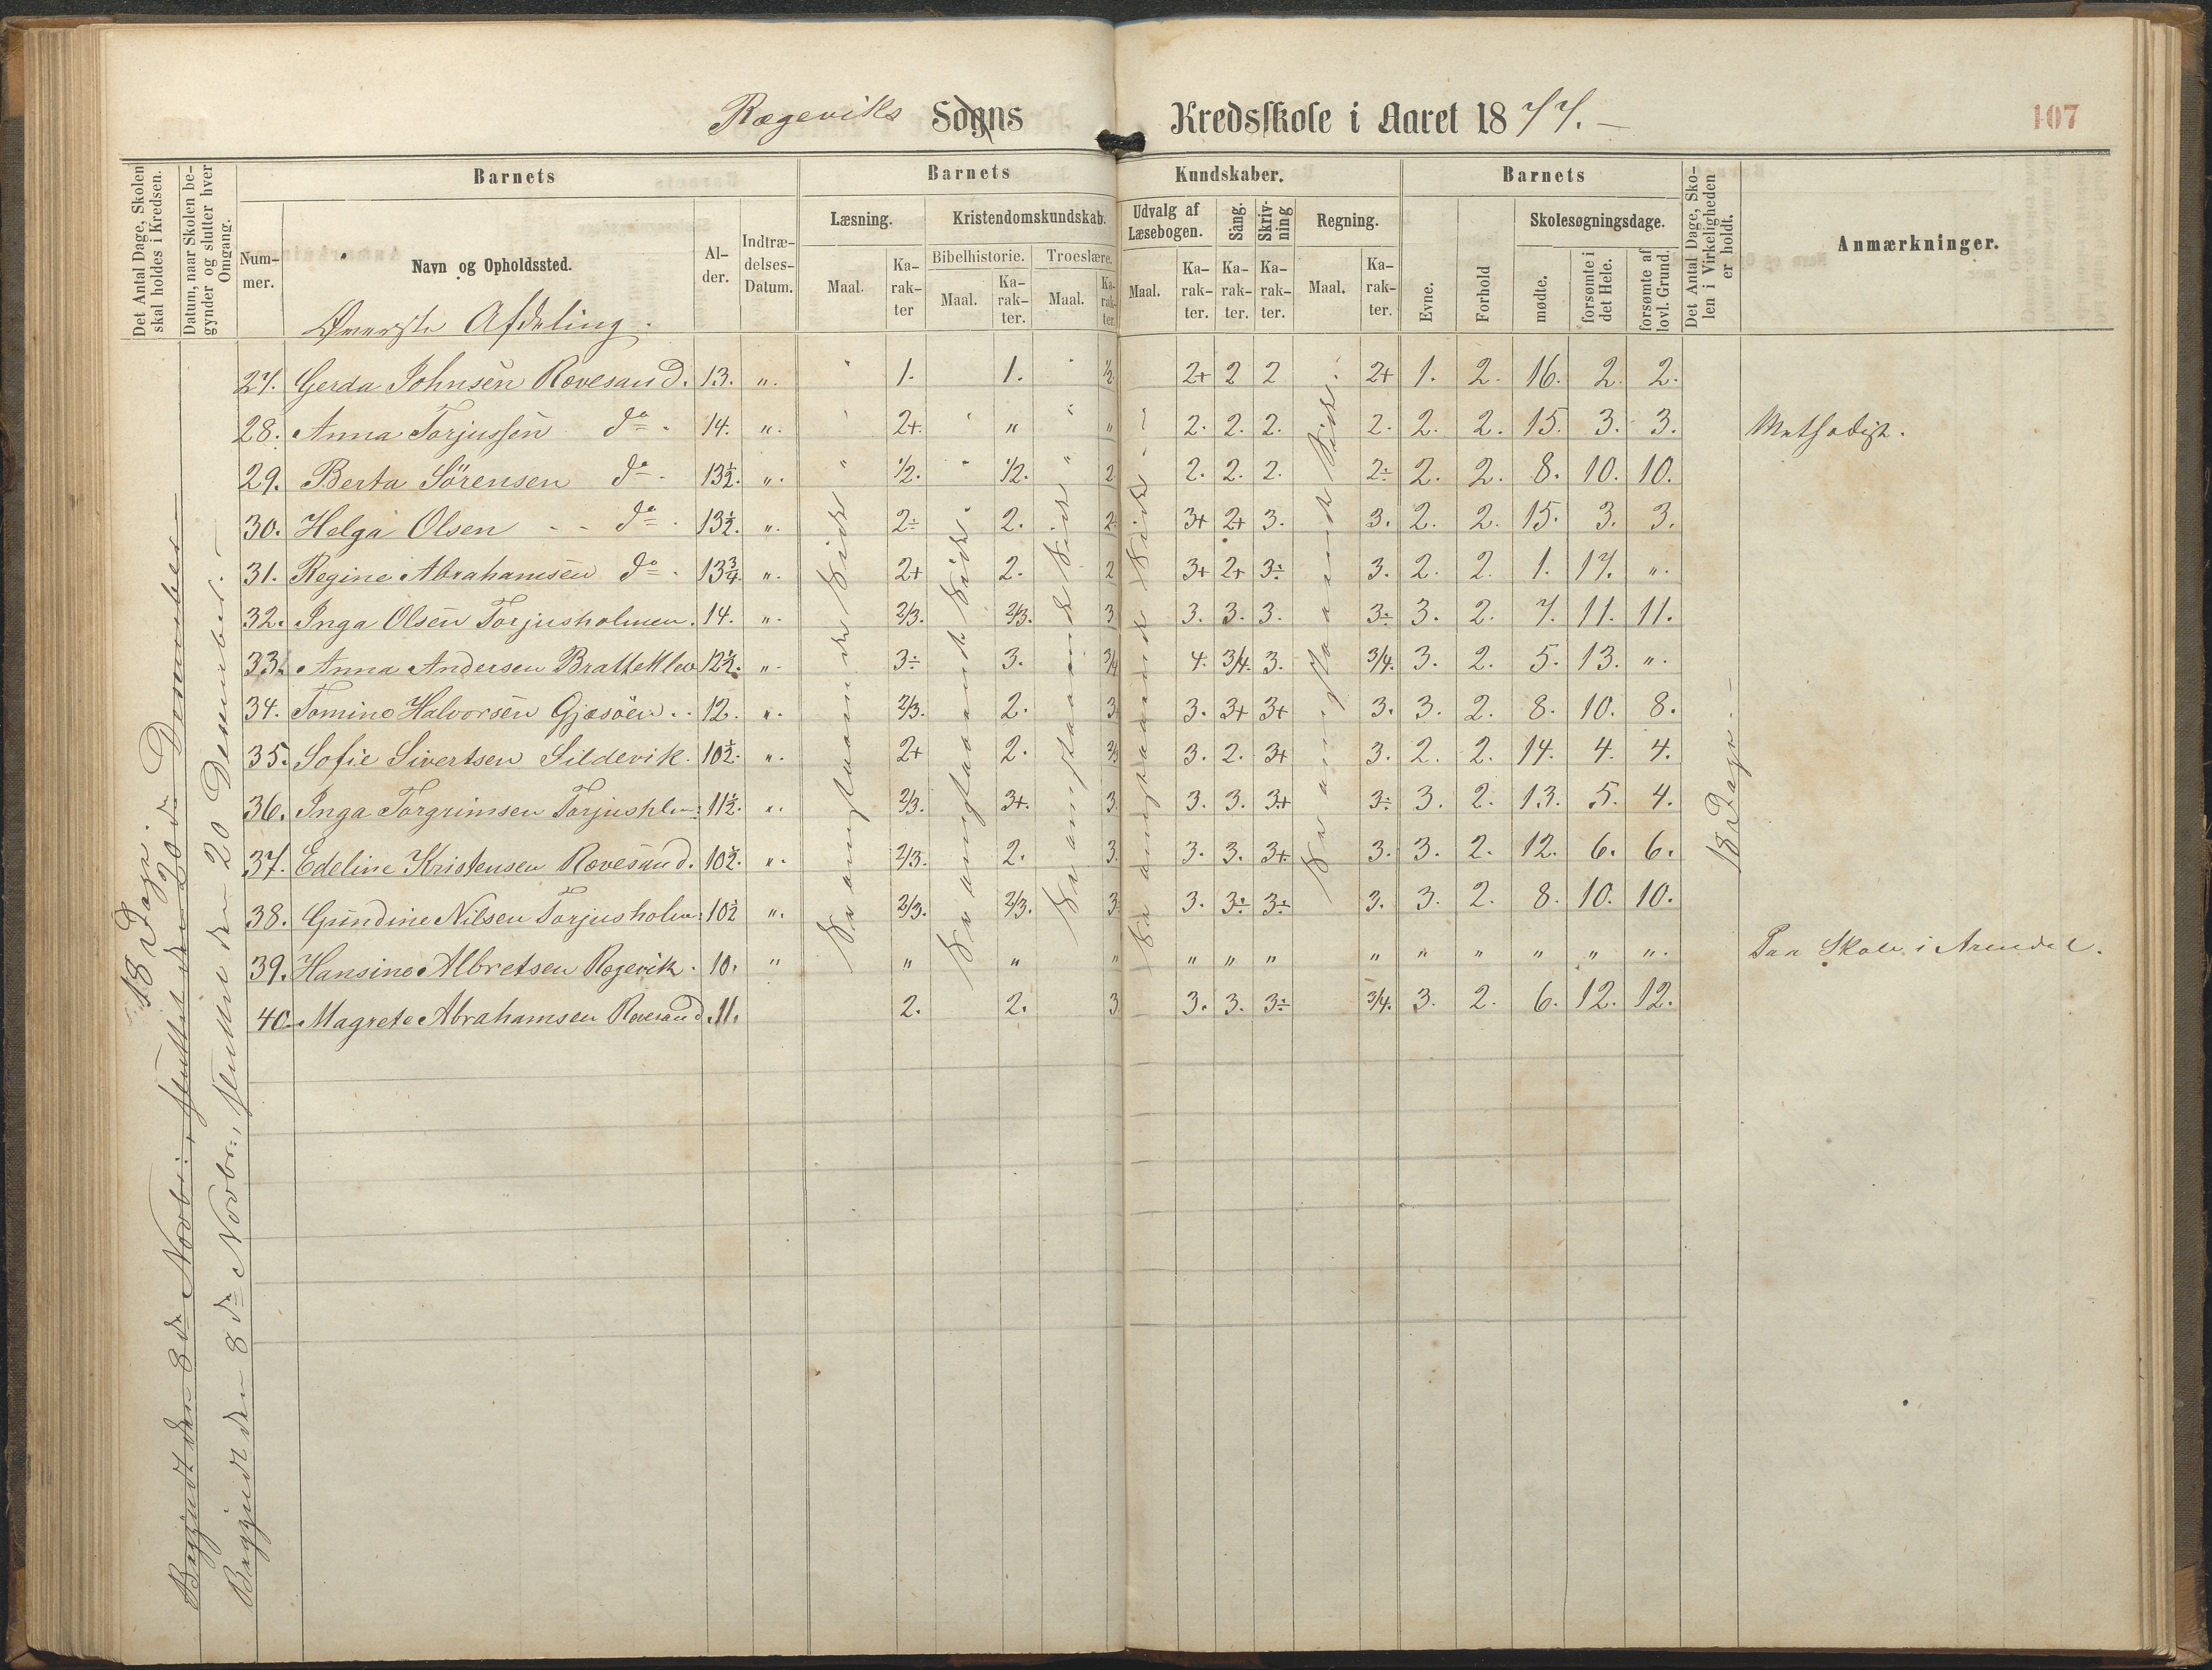 Rægeviks Sogns Kredsskole i Aaret 1877. 107
Det Antal Dage, Skolen skal holdes i Kredsen.
Datum, naar Skolen begynder og slutter hver Omgang.
Barnets
Nummer.
Navn og Opholdssted.
Alder.
Indtrædelses-Datum.
Barnets Kundskaber.
Læsning.
Maal.
Karakter
Kristendomskundskab.
Bibelhistorie.
Maal.
Karakter.
Troeslære.
Maal.
Karakter.
Udvalg af Læsebogen.
Maal.
Karakter.
Sång.
Karakter.
Skrivning
Karakter.
Regning.
Maal.
Karakter.
Barnets
Evne.
Forhold
Skolesøgningsdage.
mødte.
forsømte i det Hele.
forsømte af lovl. Grund.
Det Antal Dage, Skolen i Virkeligheden er holdt.
Anmærkninger.
Øverste Afdeling.
27. Gerda Johnsen Rævesand. 13. " 1. 1. 1/2 2+ 2 2 2+ 1. 2. 16. 2. 2.
28. Anna Torjussen do 14. " 2+ " " 2. 2. 2. 2. 2. 2. 15. 3. 3.
29. Berta Sörensen do 13½. " 1/2. 1/2. 2 2. 2. 2. 2÷ 2. 2. 8. 10. 10.
30. Helga Olsen do 13½. " 2÷ 2. 2. 3+ 2+ 3. 3. 2. 2. 15. 3. 3.
31. Regine Abrahamsen do 13¾. " 2+ 2. 2 3+ 2+ 3÷ 3. 2. 2. 1. 17. "
32. Inga Olsen Torjusholmen. 14. " 2/3. 2/3. 3 3. 3. 3. 3÷ 3. 2. 7. 11. 11.
33. Anna Andersen Bratteklev 12½. " 3÷ 3. 3/4 4. 3/4. 3. 3/4. 3. 2. 5. 13. "
34. Tomine Halvorsen Gjæsöen. 12. " 2/3. 2. 3. 3. 3+ 3+ 3. 3. 2. 8. 10. 8.
35. Sofie Sivertsen Sildevik. 10½. " 2+ 2. 2/3 3. 2. 3+ 3. 2. 2. 14. 4. 4.
36. Inga Torgrimsen Torjushlm: 11½. " 2/3. 3+. 3. 3. 3. 3+ 3÷ 3. 2. 13. 5. 4.
37. Edeline Kristensen Rævesand. 10½. " 2/3. 2. 3. 3. 3. 3+ 3. 3. 2. 12. 6. 6.
38. Gundine Nilsen Torjusholm: 10½ " 2/3. 2/3. 3. 3. 3÷ 3÷ 3. 3. 2. 8. 10. 10.
39. Hansine Albretsen Rægevik. 10. " " " " " " " " " " " " "
40. Magrete Abrahamsen Rævesand. 11. 2. 2. 3 3. 3. 3÷ 3/4. 3. 2. 6. 12. 12.
Paa Skole i Arendal.
18 Dage.
Begyndt den 8de Novbr:, sluttet den 20de Desember
Begyndt den 8de Novbr:, sluttet den 20 Desember.
Se ovenstaaende Side
Se ovenstaaende Side.
Se ovenstaaende Side
Se ovenstaaende Side.
Se ovenstaaende Side.
18 Dage.